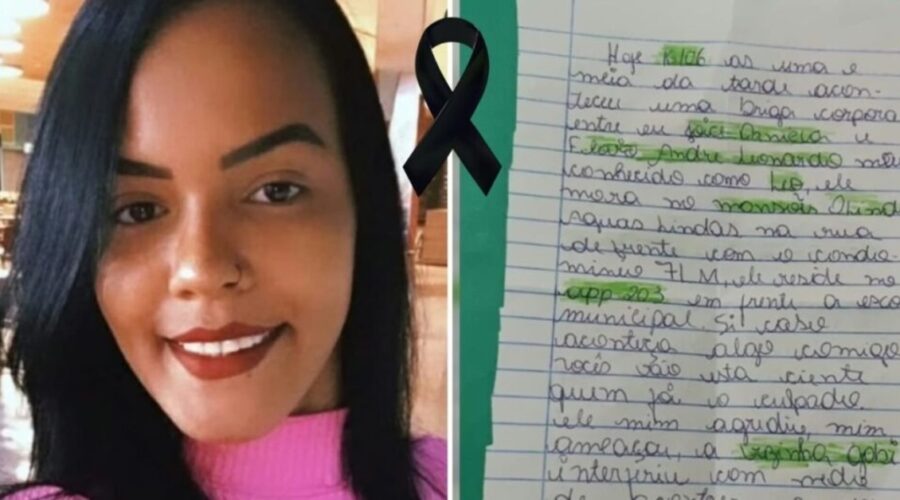 Hoje 13/06 as uma e
meia da tarde acon-
teceu uma briga corpora
entre eu e
Andre Leonardo
conhecido como Leo, ele
mora no mansões Olind
Aguas Lindas na rua
de frente com o condo-
minio 7LM, ele reside no
app 203 em frente a esco
municipal. Si caso
aconteça algo comigo
vocês vão esta ciente
quem foi o culpado.
ele mim agrediu, mim
ameaçou, a vizinha
interferiu com medo
de